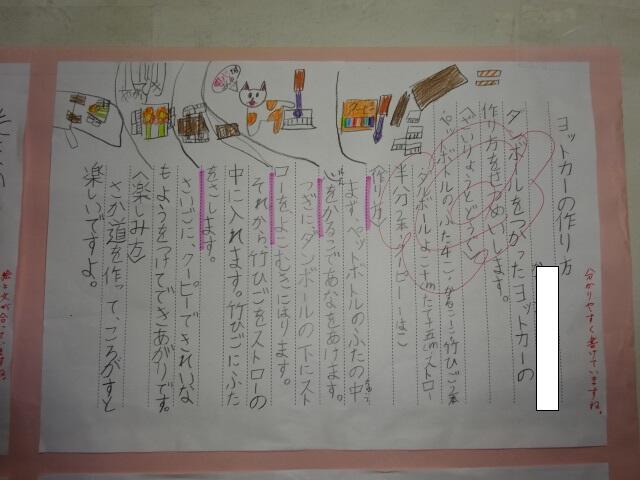 ヨットカーの作り方
ダンボールをつかったヨットカーの
作り方をせつめいします。
〈ざいりょうとどうぐ〉
ペットボトルのふた4こ・かるこ一・竹ひご二本
ダンボールよこ十cmたて十五cm・ストロー
半分2本・クーピー一はこ
〈作り方〉
まず、ペットボトルのふたの中
心をかるこであなをあけます。
つぎに、ダンボールの下にスト
ローをよこむきにはります。
それから竹ひごをストローの
中に入れます。竹ひごにふた
をさします。
さいごに、クーピーできれいな
もようをつけてできあがりです。
〈楽しみ方〉
さか道を作って、ころがすと
楽しいですよ。
分かりやすく書けていますね。